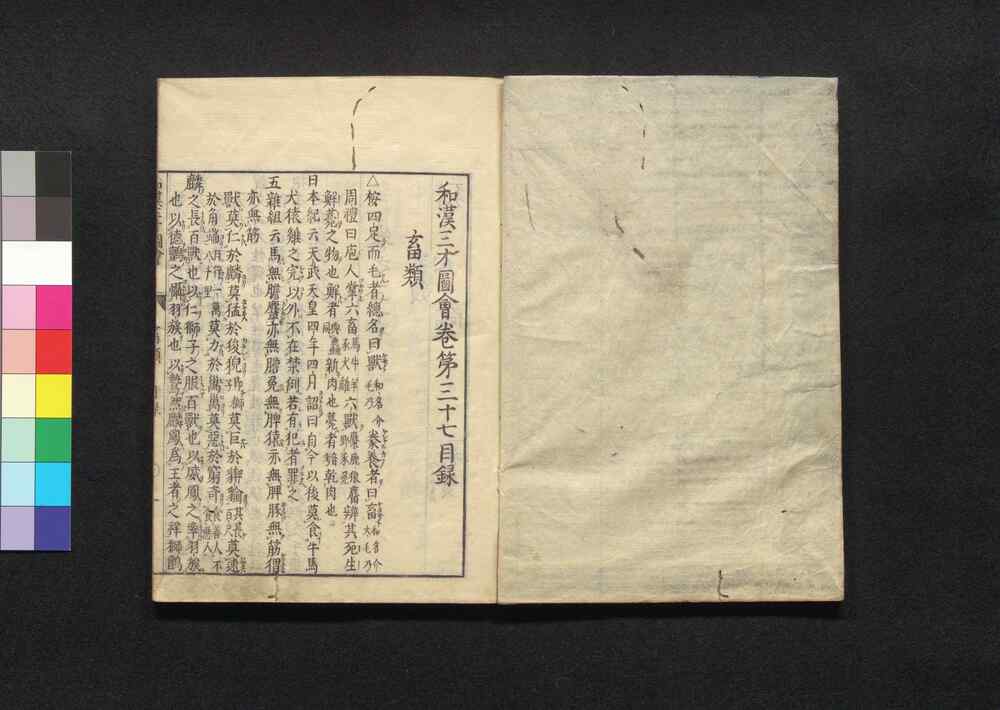 和漢三才圖會卷第三十七目録
畜類
△按四足而毛者總名曰獸和名介毛乃豢養者曰畜和名介大毛乃
周禮曰庖人掌六畜馬牛羊豕犬雞六獸麋鹿狼麕野豕兎辨其死生
鮮薧之物也鮮者新肉也薧者乾肉也
日本紀云天武天皇四年四月詔曰自今以後莫食牛馬
犬猿雞之完以外不在禁例若有犯者罪之
五雜組云馬無膽麕亦無膽兔無脾猿亦無脾豚無筋猬
亦無筋
獸莫仁於麟莫猛於狻猊即獅子莫巨於莫速
於角端日行一萬八千里莫力於莫惡於窮奇食善人不食惡人
麟之長百獸也以仁獅子之服百獸也以威鳳之率羽族
也以德之懾羽族也以鷙然麟鳳爲王者之祥獅